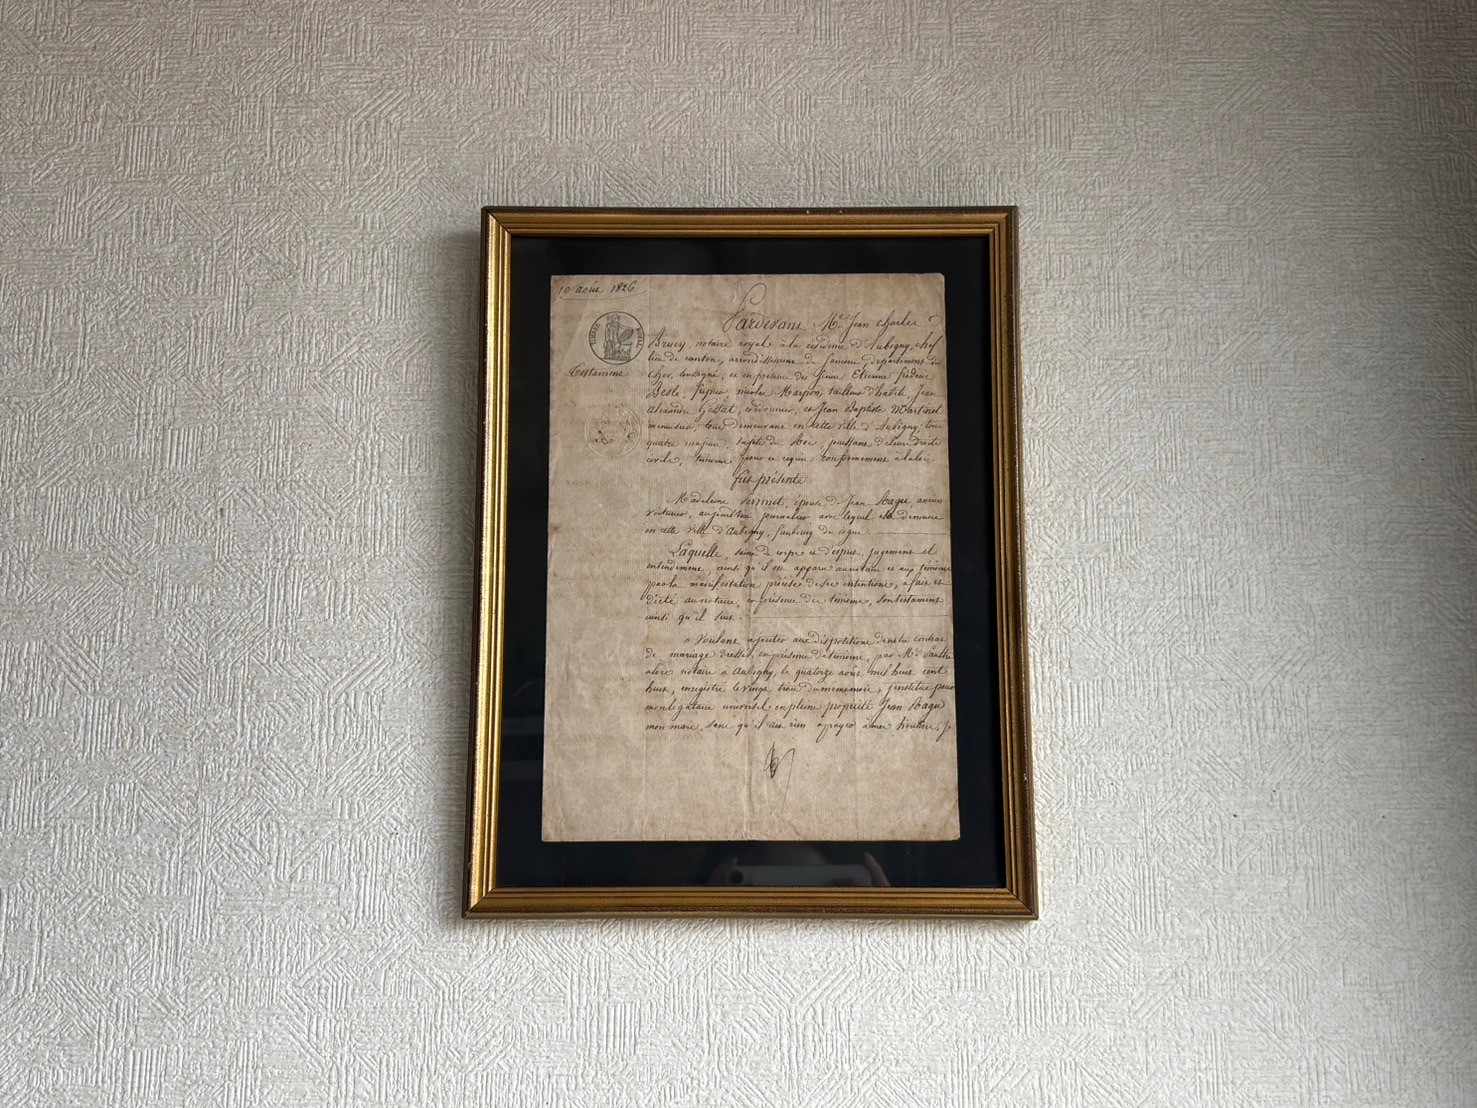 10 août 1826
Pardevant Me Jean Charles
TIMBRE ROYAL
Brucy, notaire royal à la résidence d'Aubigny, chef
lieu de canton, arrondissement de Sancerre département du
Testament
Cher, soussigné, et en présence des Sieurs Etienne Frédéric
Besle, fripier, nicolas Marpon, tailleur d'habits, Jean
alexandre Gessat, cordonnier, et Jean Baptiste Martinet
menuisier, tous demeurant en cette ville d'Aubigny, tous
quatre majeurs, sujets du Roi, jouissant de leurs droits
civils, témoins pour ce requis conformément à la loi
fut présente
Madeleine épouse de Jean Rague, ancien
voiturier, aujourd'hui journalier avec lequel elle demeure
en cette ville d'Aubigny, faubourg du cigne.
Laquelle, saine de corps et d'esprit, jugement et
entendement, ainsi qu'il est apparu au notaire et aux témoins
par la manifestation précise de ses intentions, a fait et
dicté au notaire, en présence des témoins, son testament
ainsi qu'il suit.
" Voulant ajouter aux dispositions de notre contrat
de mariage dressé, en présence de témoins, par Me
alors notaire à Aubigny, le quatorze août mil huit cent
huit, enregistré le vingt trois du même mois, j'institue pour
mon légataire universel en pleine propriété Jean Rague
mon mari, sans qu'il ait rien à payer à mes héritiers, je